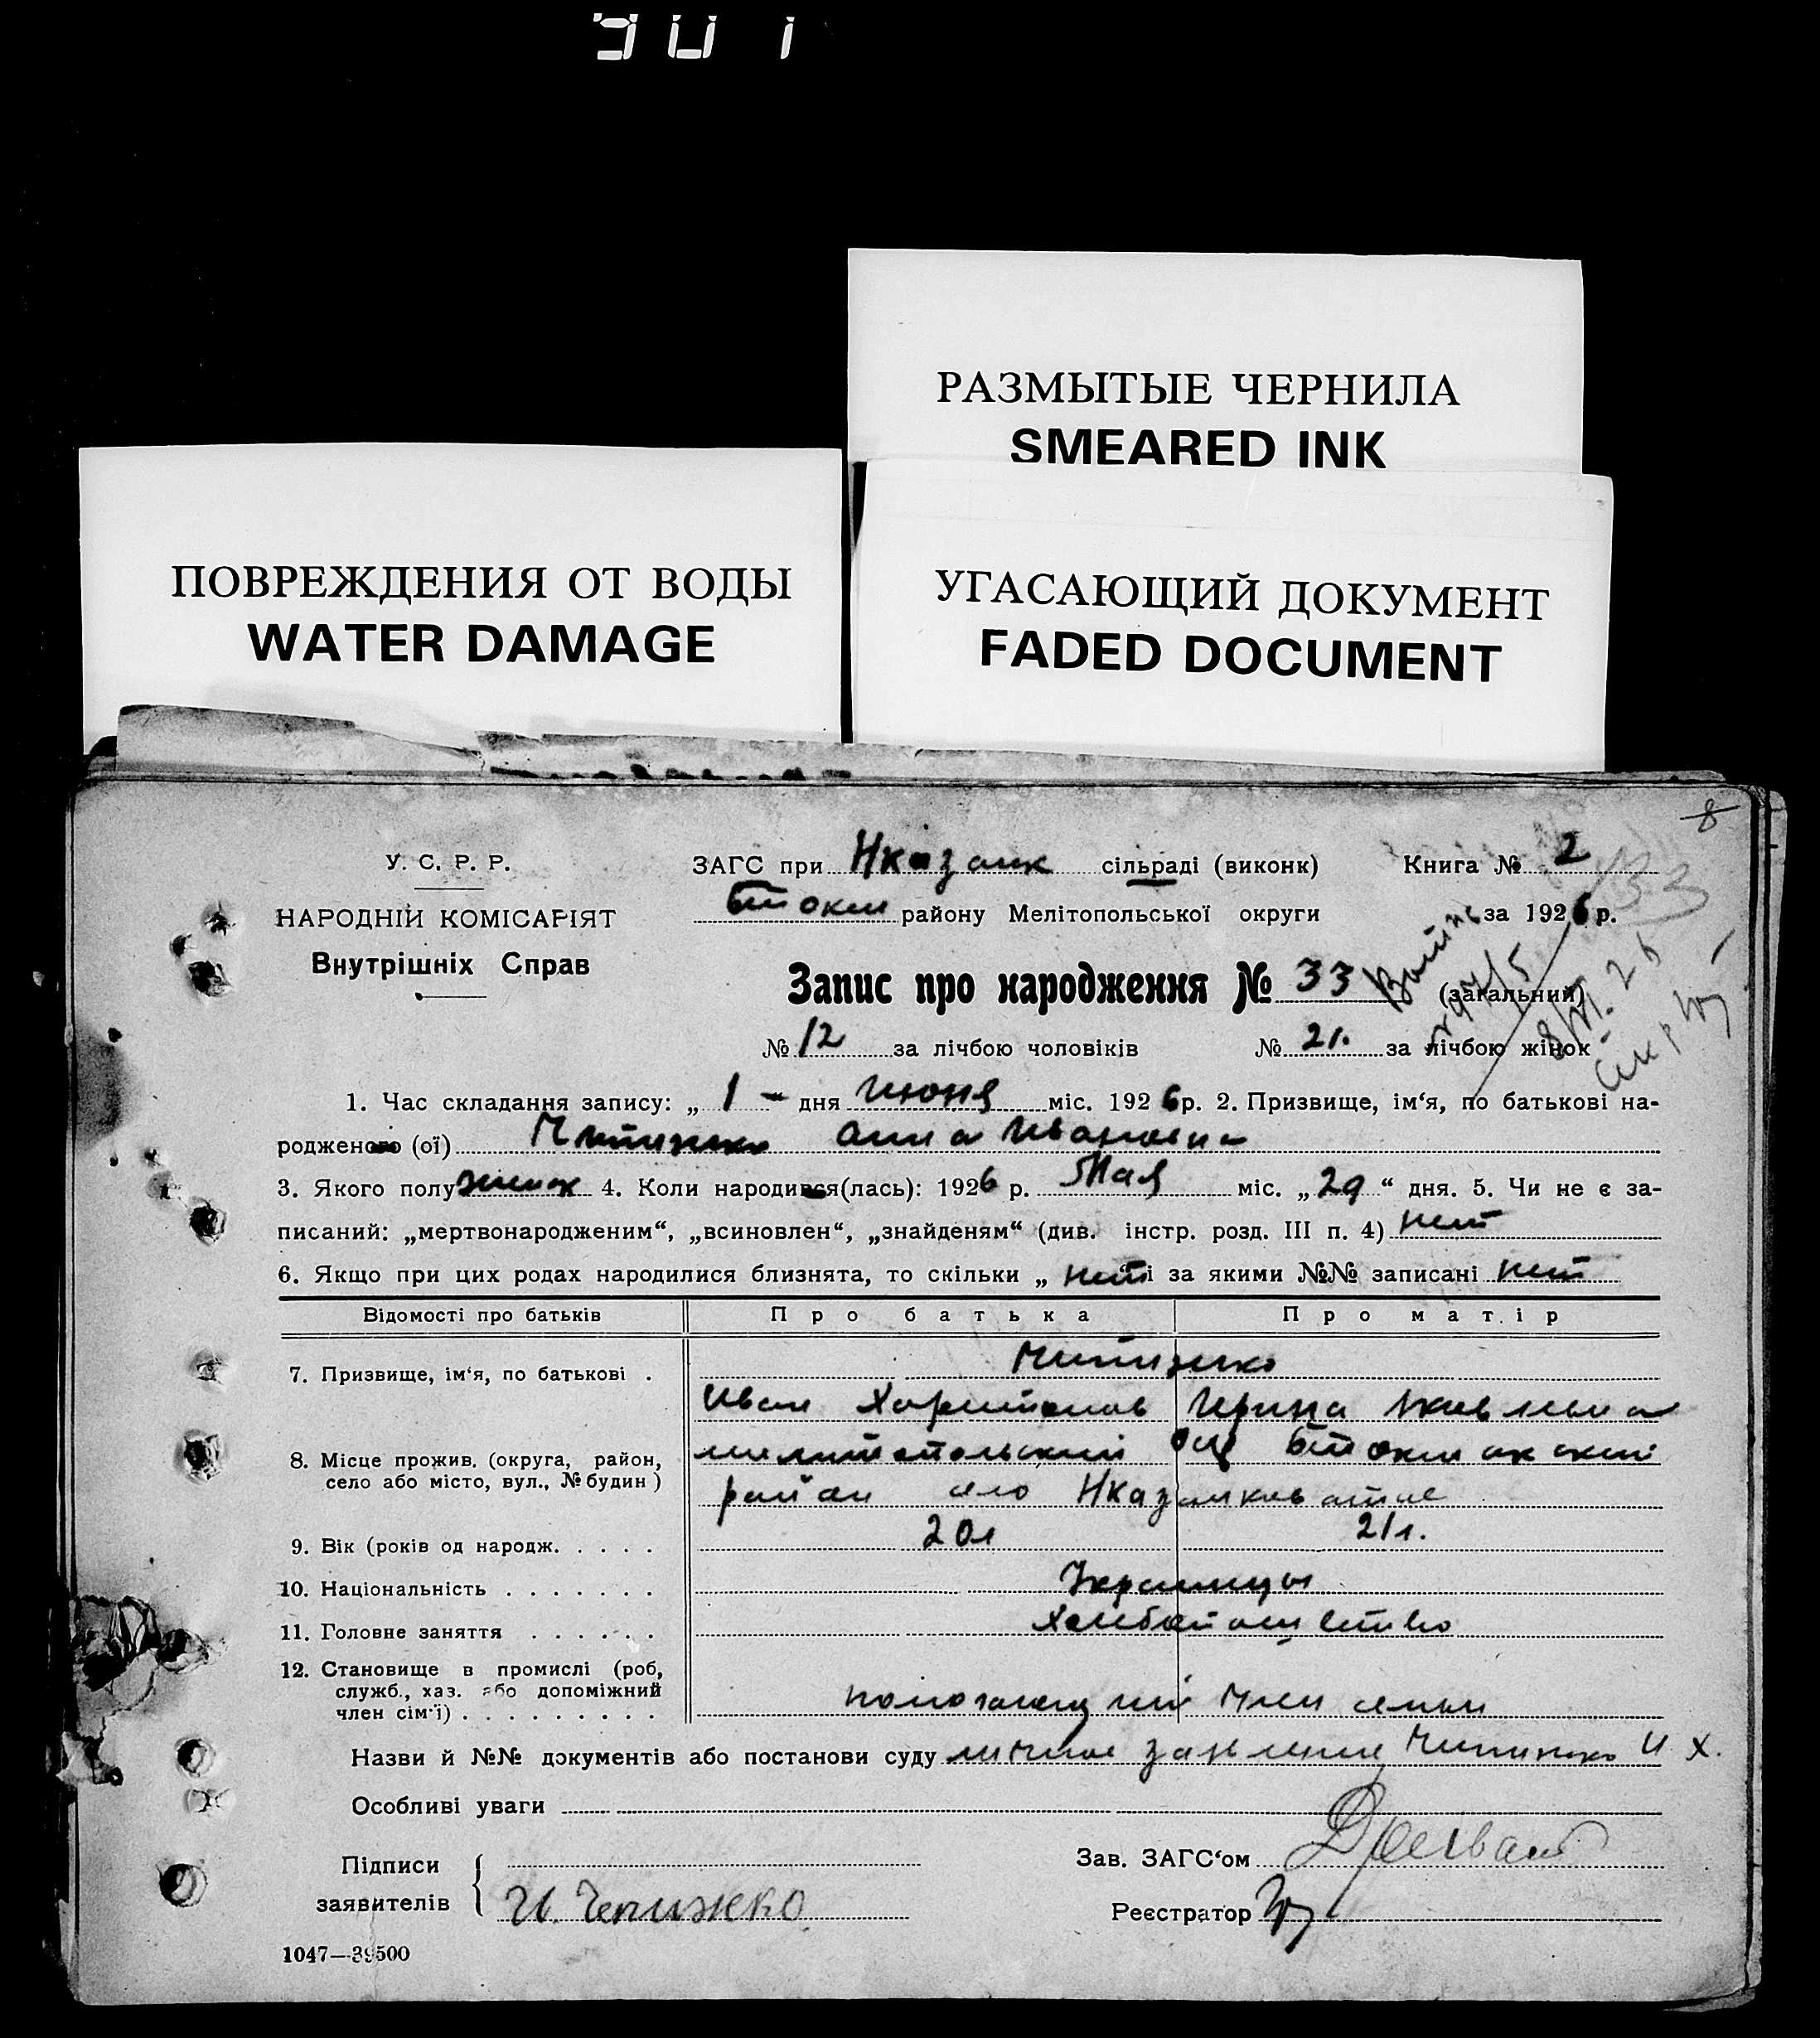 901
РАЗМЫТЫЕ ЧЕРНИЛА
SMEARED INK
ПОВРЕЖДЕНИЯ ОТ ВОДЫ
WATER DAMAGE
УГАСАЮЩИЙ ДОКУМЕНТ
FADED DOCUMENT
8
У. С. Р. Р.
НАРОДНІЙ КОМІСАРІЯТ
Внутрішніх Справ
ЗАГС при Нказанк сільраді (виконк) Книга № 2
Бтокм району Мелітопольської округи за 1926 р.
Запис про народження № 33 (загальний)
№ 12 за лічбою чоловіків № 21. за лічбою жінок
1. Час складання запису: „ 1 “ дня июня міс. 1926 р. 2. Призвище, ім‘я, по батькові на-
родженого (ої) Анна Ивановна
3. Якого полу женск 4. Коли народився(лась): 1926 р. Мая міс. „29“ дня. 5. Чи не є за-
писаний: „мертвонародженим“, „всиновлен“, „знайденям“ (див. інстр. розд. III п. 4) нет
6. Якщо при цих родах народилися близнята, то скільки „ нет і за якими №№ записані нет
Відомості про батьків Про батька Про матір
7. Призвище, ім‘я, по батькові .
Иван Харитонов Ирина Яковлевна
8. Місце прожив. (округа, район,
село або місто, вул., № будин)
мелитопольский окр Бтокмакский
район село Нказанковатое
9. Вік (років од народж. . . . . 20л 21л.
10. Національність . . . . . . . Украинцы
11. Головне заняття . . . . . . Хлебопашество
12. Становище в промислі (роб,
служб., хаз. або допоміжний
член сім‘ї) . . . . . . . . . помогающий член семьи
Назви й №№ документів або постанови суду личное заявление И Х.
Особливі уваги
Підписи
заявителів И. Чепижко
Зав. ЗАГС‘ом
Реєстратор
1047—39500